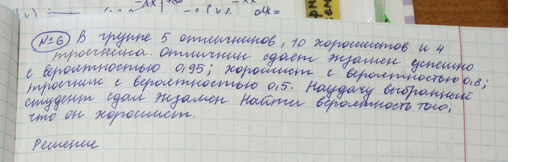 №6 В группе 5 отличников, 10 хорошистов и 4
троечника. Отличник сдаёт экзамен успешно
с вероятностью 0,95; хорошист с вероятностью 0,8;
троечник с вероятностью 0.5. Наудачу выбранный
студент сдал экзамен. Найти вероятность того,
что он хорошист.
Решение